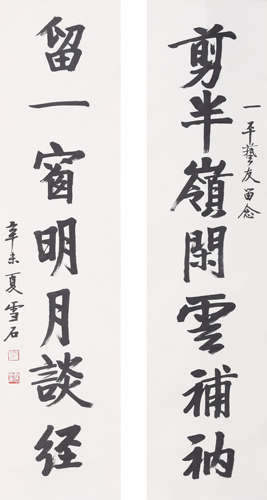 剪半嶺閑雲補衲
一平藝友留念
留一窗明月談经
辛未夏雪石